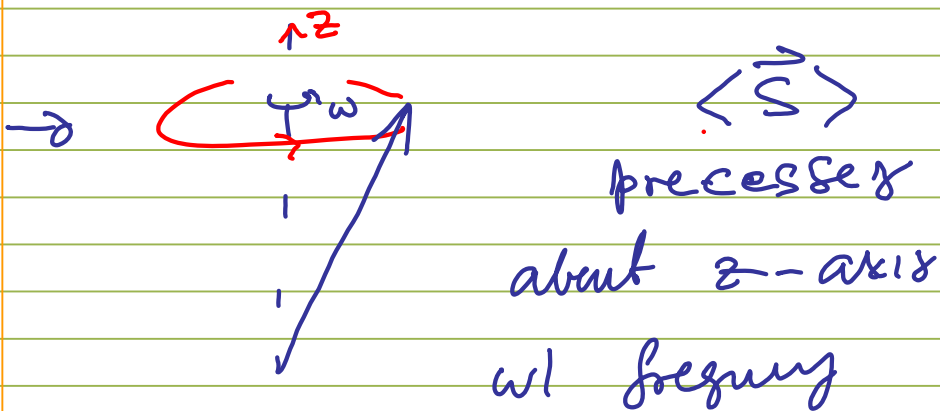 z
ω
⟨S⃗⟩
precesses
about z-axis
w/ frequency